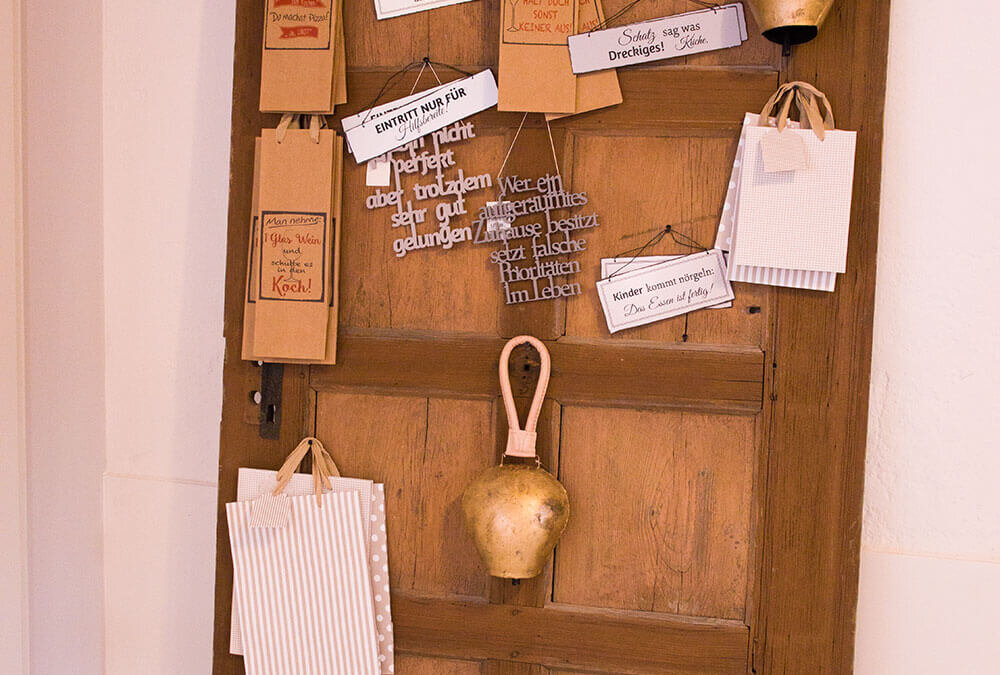 Du machst Pizza!
HÄLT DOCH
SONST
KEINER AUS!
Schatz sag was
Dreckiges! Küche.
EINTRITT NUR FÜR
Hilfsbereite!
nicht
perfekt
aber trotzdem
sehr gut
gelungen
Wer ein
aufgeräumtes
Zuhause besitzt
setzt falsche
Prioritäten
Im Leben
Man nehme:
1 Glas Wein
und
schütte es
in den
Koch!
Kinder kommt nörgeln:
Das Essen ist fertig!